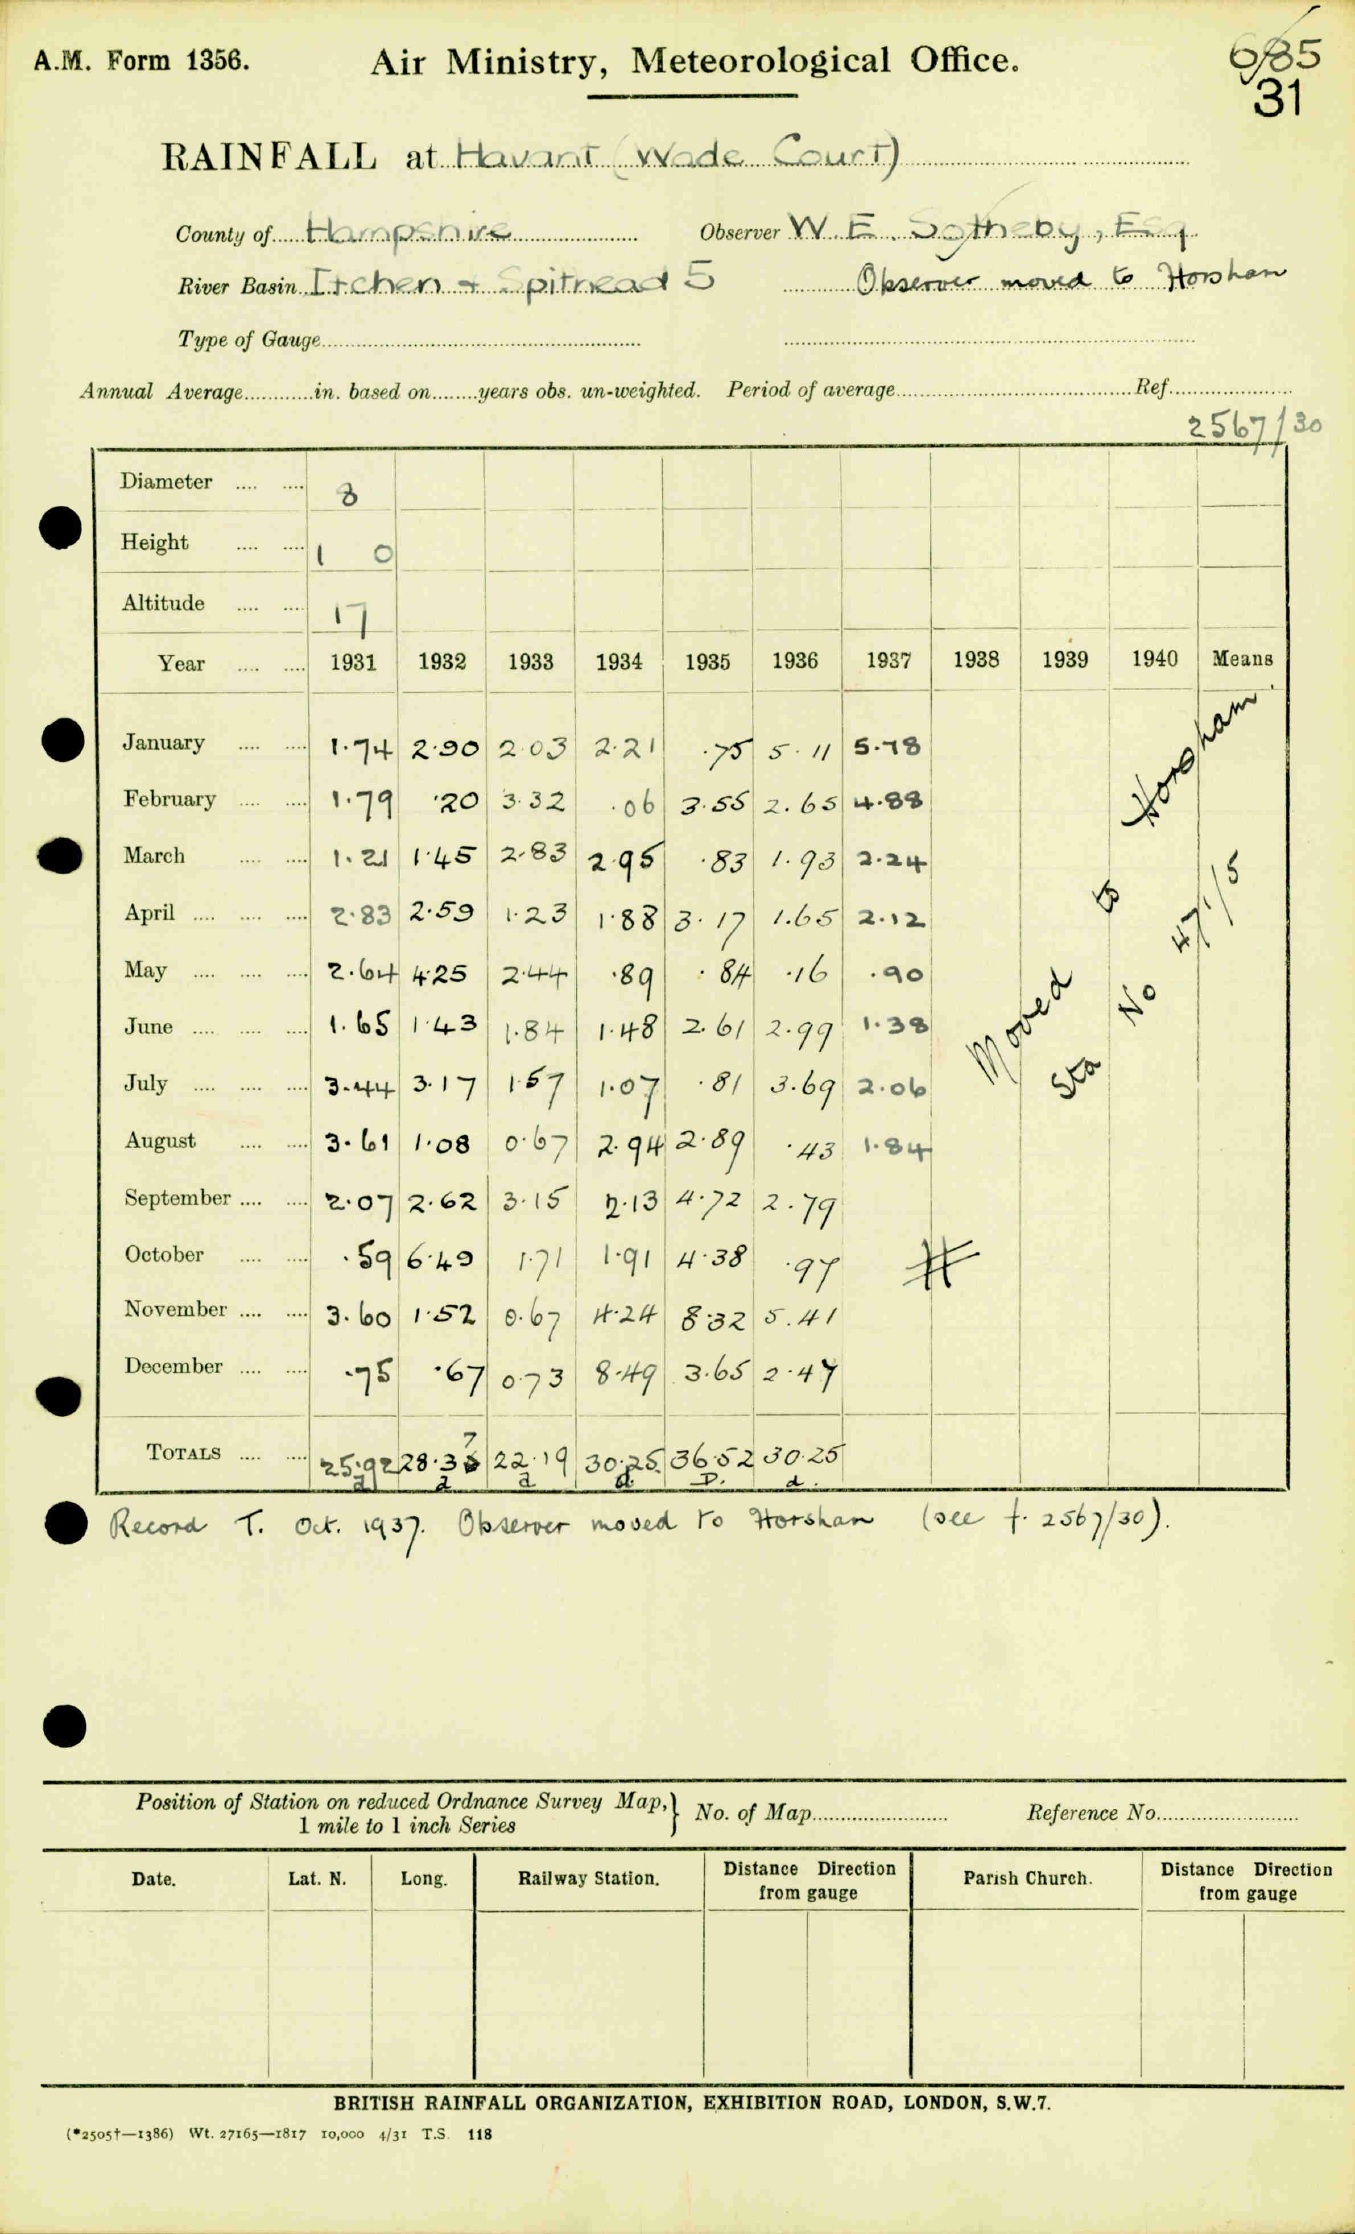 A.M. Form 1356. Air Ministry, Meteorological Office. 685
31
RAINFALL at Havant (Wade Court)
County of Hampshire Observer W. E. Sotheby, Esq
River Basin Itchen + Spithead 5 Observer moved to Horsham
Type of Gauge
Annual Average in. based on years obs. un-weighted. Period of average Ref.
2567/30
Diameter 8
Height 1 0
Altitude 17
Year 1931 1932 1933 1934 1935 1936 1937 1938 1939 1940 Means
January 1.74 2.90 2.03 2.21 .75 5.11 5.78
February 1.79 .20 3.32 .06 3.55 2.65 4.88
March 1.21 1.45 2.83 2.95 .83 1.93 2.24
April 2.83 2.59 1.23 1.88 3.17 1.65 2.12
May 2.64 4.25 2.44 .89 .84 .16 .90
June 1.65 1.43 1.84 1.48 2.61 2.99 1.38
July 3.44 3.17 1.57 1.07 .81 3.69 2.06
August 3.61 1.08 0.67 2.94 2.89 .43 1.84
September 2.07 2.62 3.15 2.13 4.72 2.79
October .59 6.49 1.71 1.91 4.38 .97
November 3.60 1.52 0.67 4.24 8.32 5.41
December .75 .67 0.73 8.49 3.65 2.47
Moved to Horsham.
Sta No 47/15
TOTALS 25.92 28.37 22.19 30.25 36.52 30.25
a a a d. D. d.
Record T. Oct. 1937. Observer moved to Horsham (see f. 2567/30).
Position of Station on reduced Ordnance Survey Map, No. of Map Reference No.
1 mile to 1 inch Series
Date. Lat. N. Long. Railway Station. Distance Direction from gauge Parish Church. Distance Direction from gauge
BRITISH RAINFALL ORGANIZATION, EXHIBITION ROAD, LONDON, S.W.7.
(*2505†—1386) Wt. 27165—1817 10,000 4/31 T.S. 118